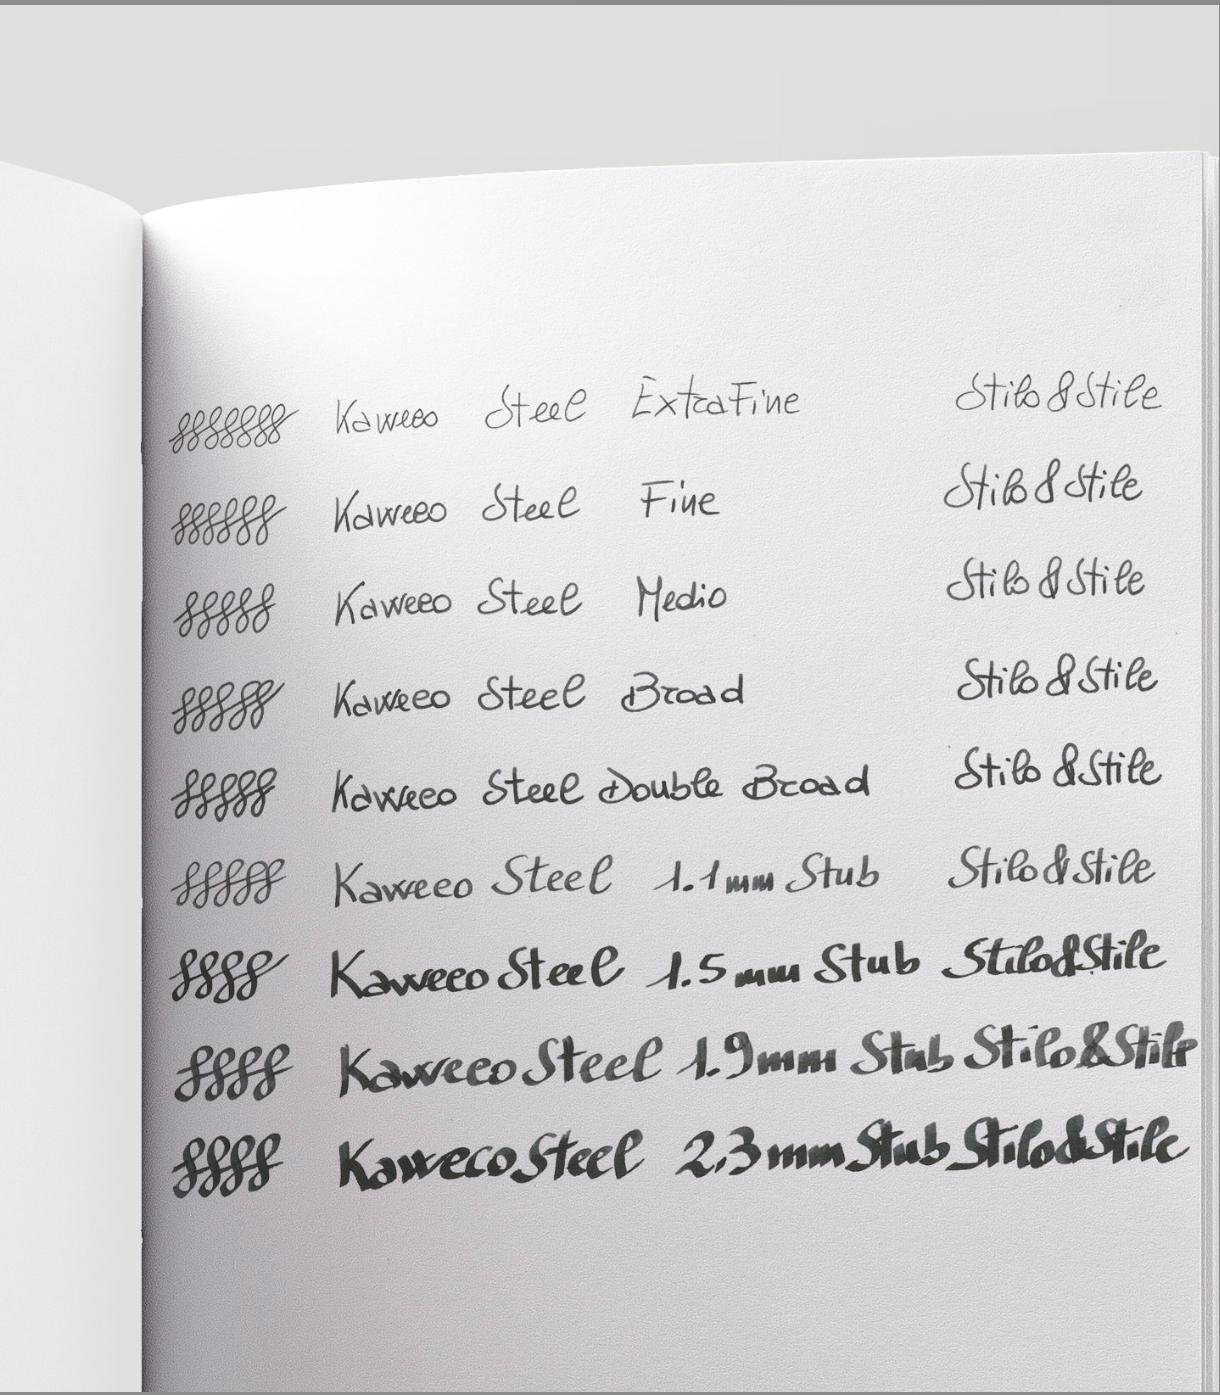 Kaweco Steel ExtraFine Stilo & Stile
Kaweco Steel Fine Stilo & Stile
Kaweco Steel Medio Stilo & Stile
Kaweco Steel Broad Stilo & Stile
Kaweco Steel Double Broad Stilo & Stile
Kaweco Steel 1.1mm Stub Stilo & Stile
Kaweco Steel 1.5mm Stub Stilo & Stile
Kaweco Steel 1.9mm Stub Stilo & Stile
Kaweco Steel 2.3mm Stub Stilo & Stile